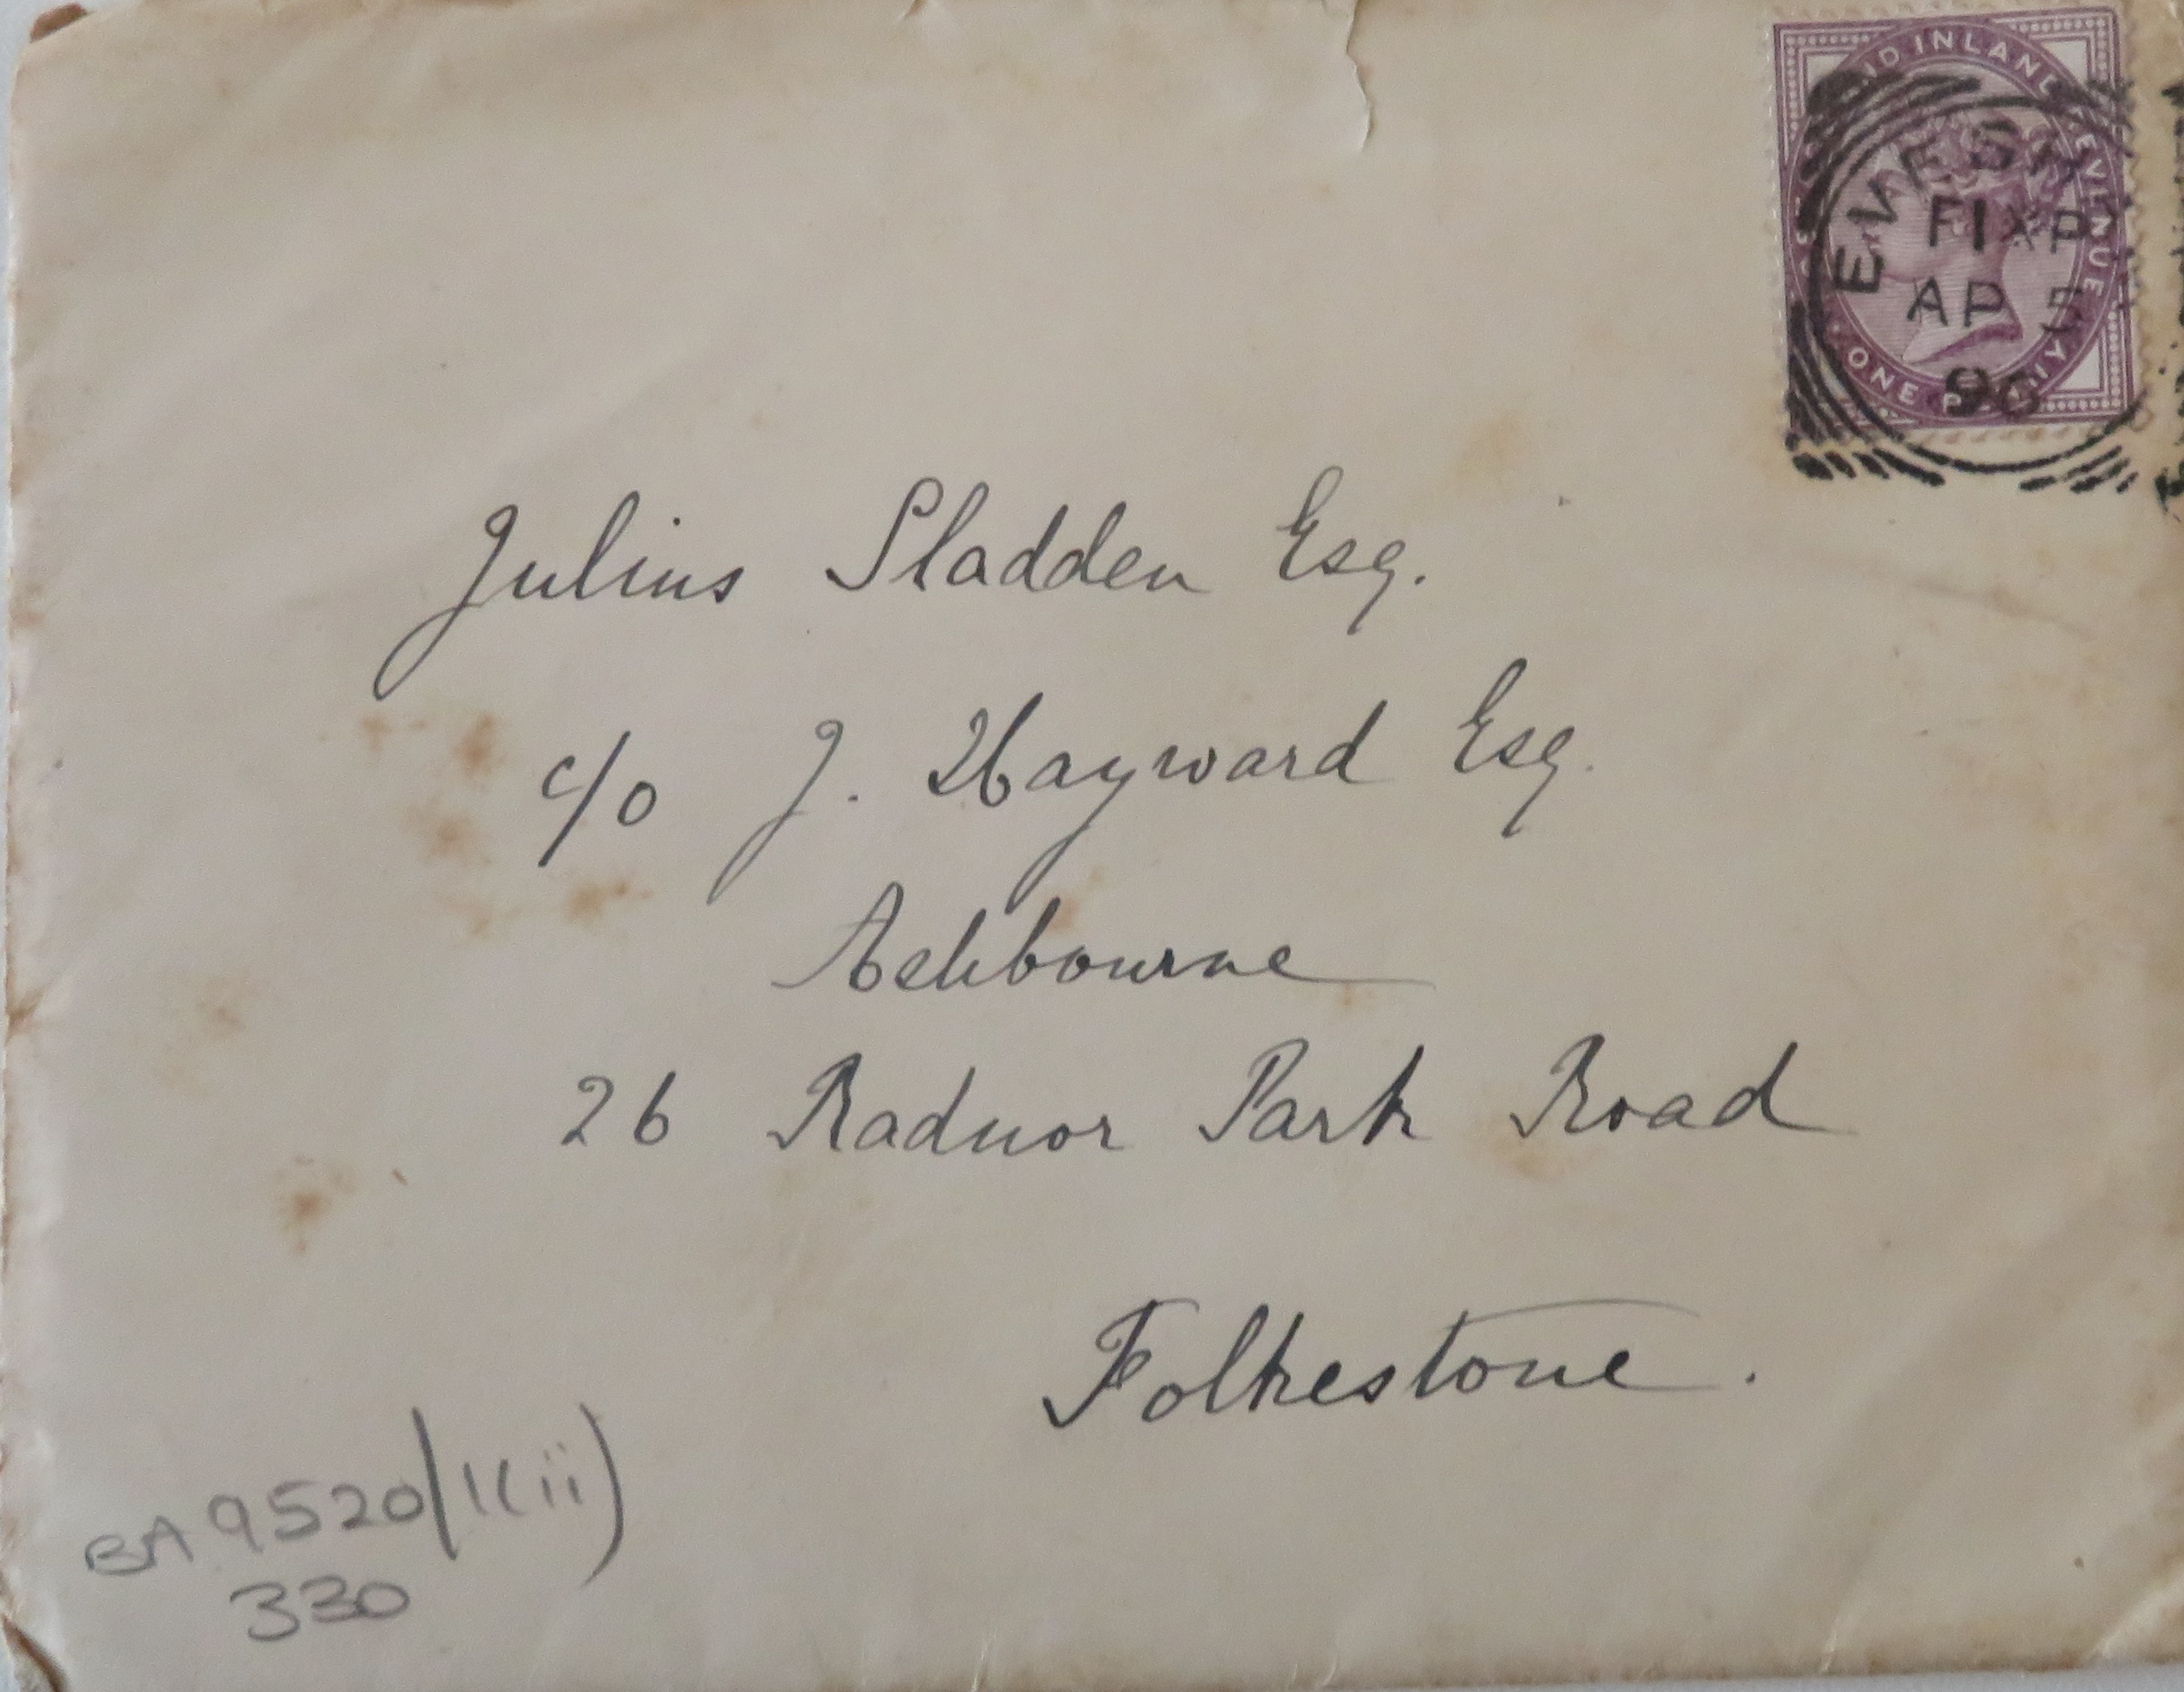 ND INLAND REVENUE
ONE P
EVESH
F1XP
AP 5
96
Julius Sladden Esq.
c/o J. Hayward Esq.
Ashbourne
26 Radnor Park Road
Folkestone.
BA 9520/1(ii)
330